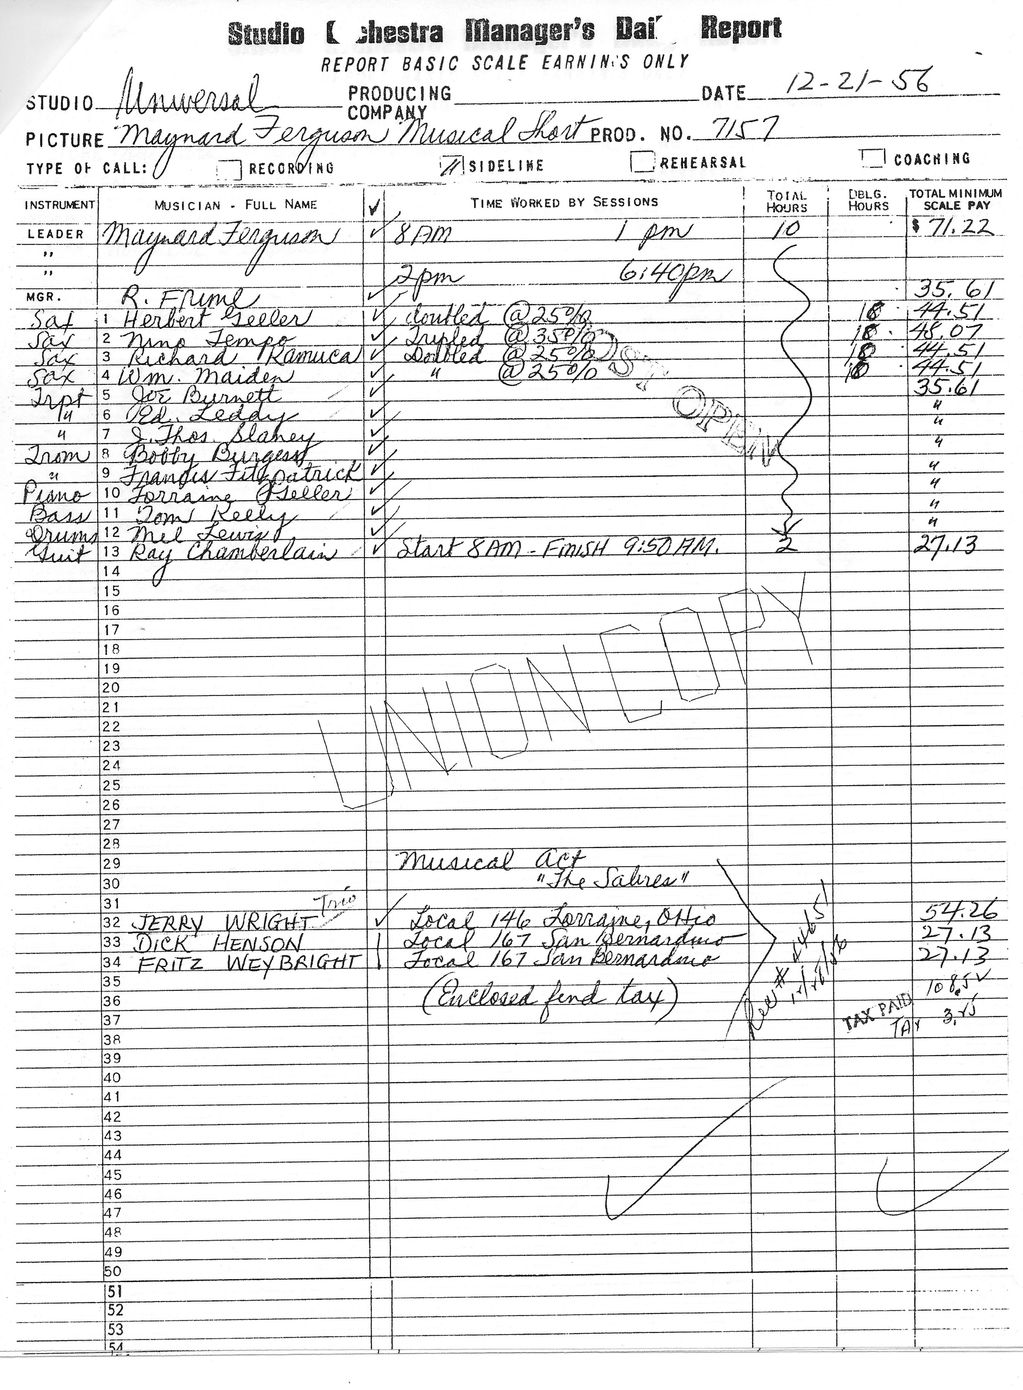 Studio Orchestra Manager's Daily Report
REPORT BASIC SCALE EARNINGS ONLY
STUDIO Universal PRODUCING COMPANY DATE 12-21-56
PICTURE "Maynard Ferguson Musical Short PROD. NO. 7157
TYPE OF CALL: RECORDING SIDELINE REHEARSAL COACHING
INSTRUMENT MUSICIAN - FULL NAME ✓ TIME WORKED BY SESSIONS TOTAL HOURS DBLG. HOURS TOTAL MINIMUM SCALE PAY
LEADER Maynard Ferguson ✓ 8 AM 1 pm 10 $ 71.22
"
" 2pm 6:40pm
MGR. R. Friml ✓ 35.61
Sax 1 Herbert Geller ✓ doubled @ 25% 44.51
Sax 2 Nino Tempo ✓ Tripled @ 35% 48.07
Sax 3 Richard Kamuca ✓ Doubled @ 25% 44.51
Sax 4 Wm. Maiden ✓ " @ 25% 44.51
Trpt 5 Joe Burnett ✓ 35.61
" 6 Ed. Leddy ✓ "
" 7 J. Thos. Slaney ✓ "
Trom 8 Bobby Burgess ✓ "
" 9 Francis Fitzpatrick ✓ "
Piano 10 Lorraine Geller ✓ "
Bass 11 Tom Kelly ✓ "
Drums 12 Mel Lewis ✓ "
Guit 13 Ray Chamberlain ✓ Start 8 AM - FINISH 9:50 AM. 2 27.13
OPEN
14
15
16
17
18
19
20
21
22
23
24
25
26
27
28
UNION COPY
29 Musical Act
30 "The Sabres"
31 Trio
32 JERRY WRIGHT ✓ Local 146 Lorraine, Ohio 54.26
33 DICK HENSON Local 167 San Bernardino 27.13
34 FRITZ WEYBRIGHT Local 167 San Bernardino 27.13
35 108.52
36 (Enclosed find tax)
37 TAX PAID
38 TAX
39
40
41
42
43
44
45
46
47
48
49
50
51
52
53
54